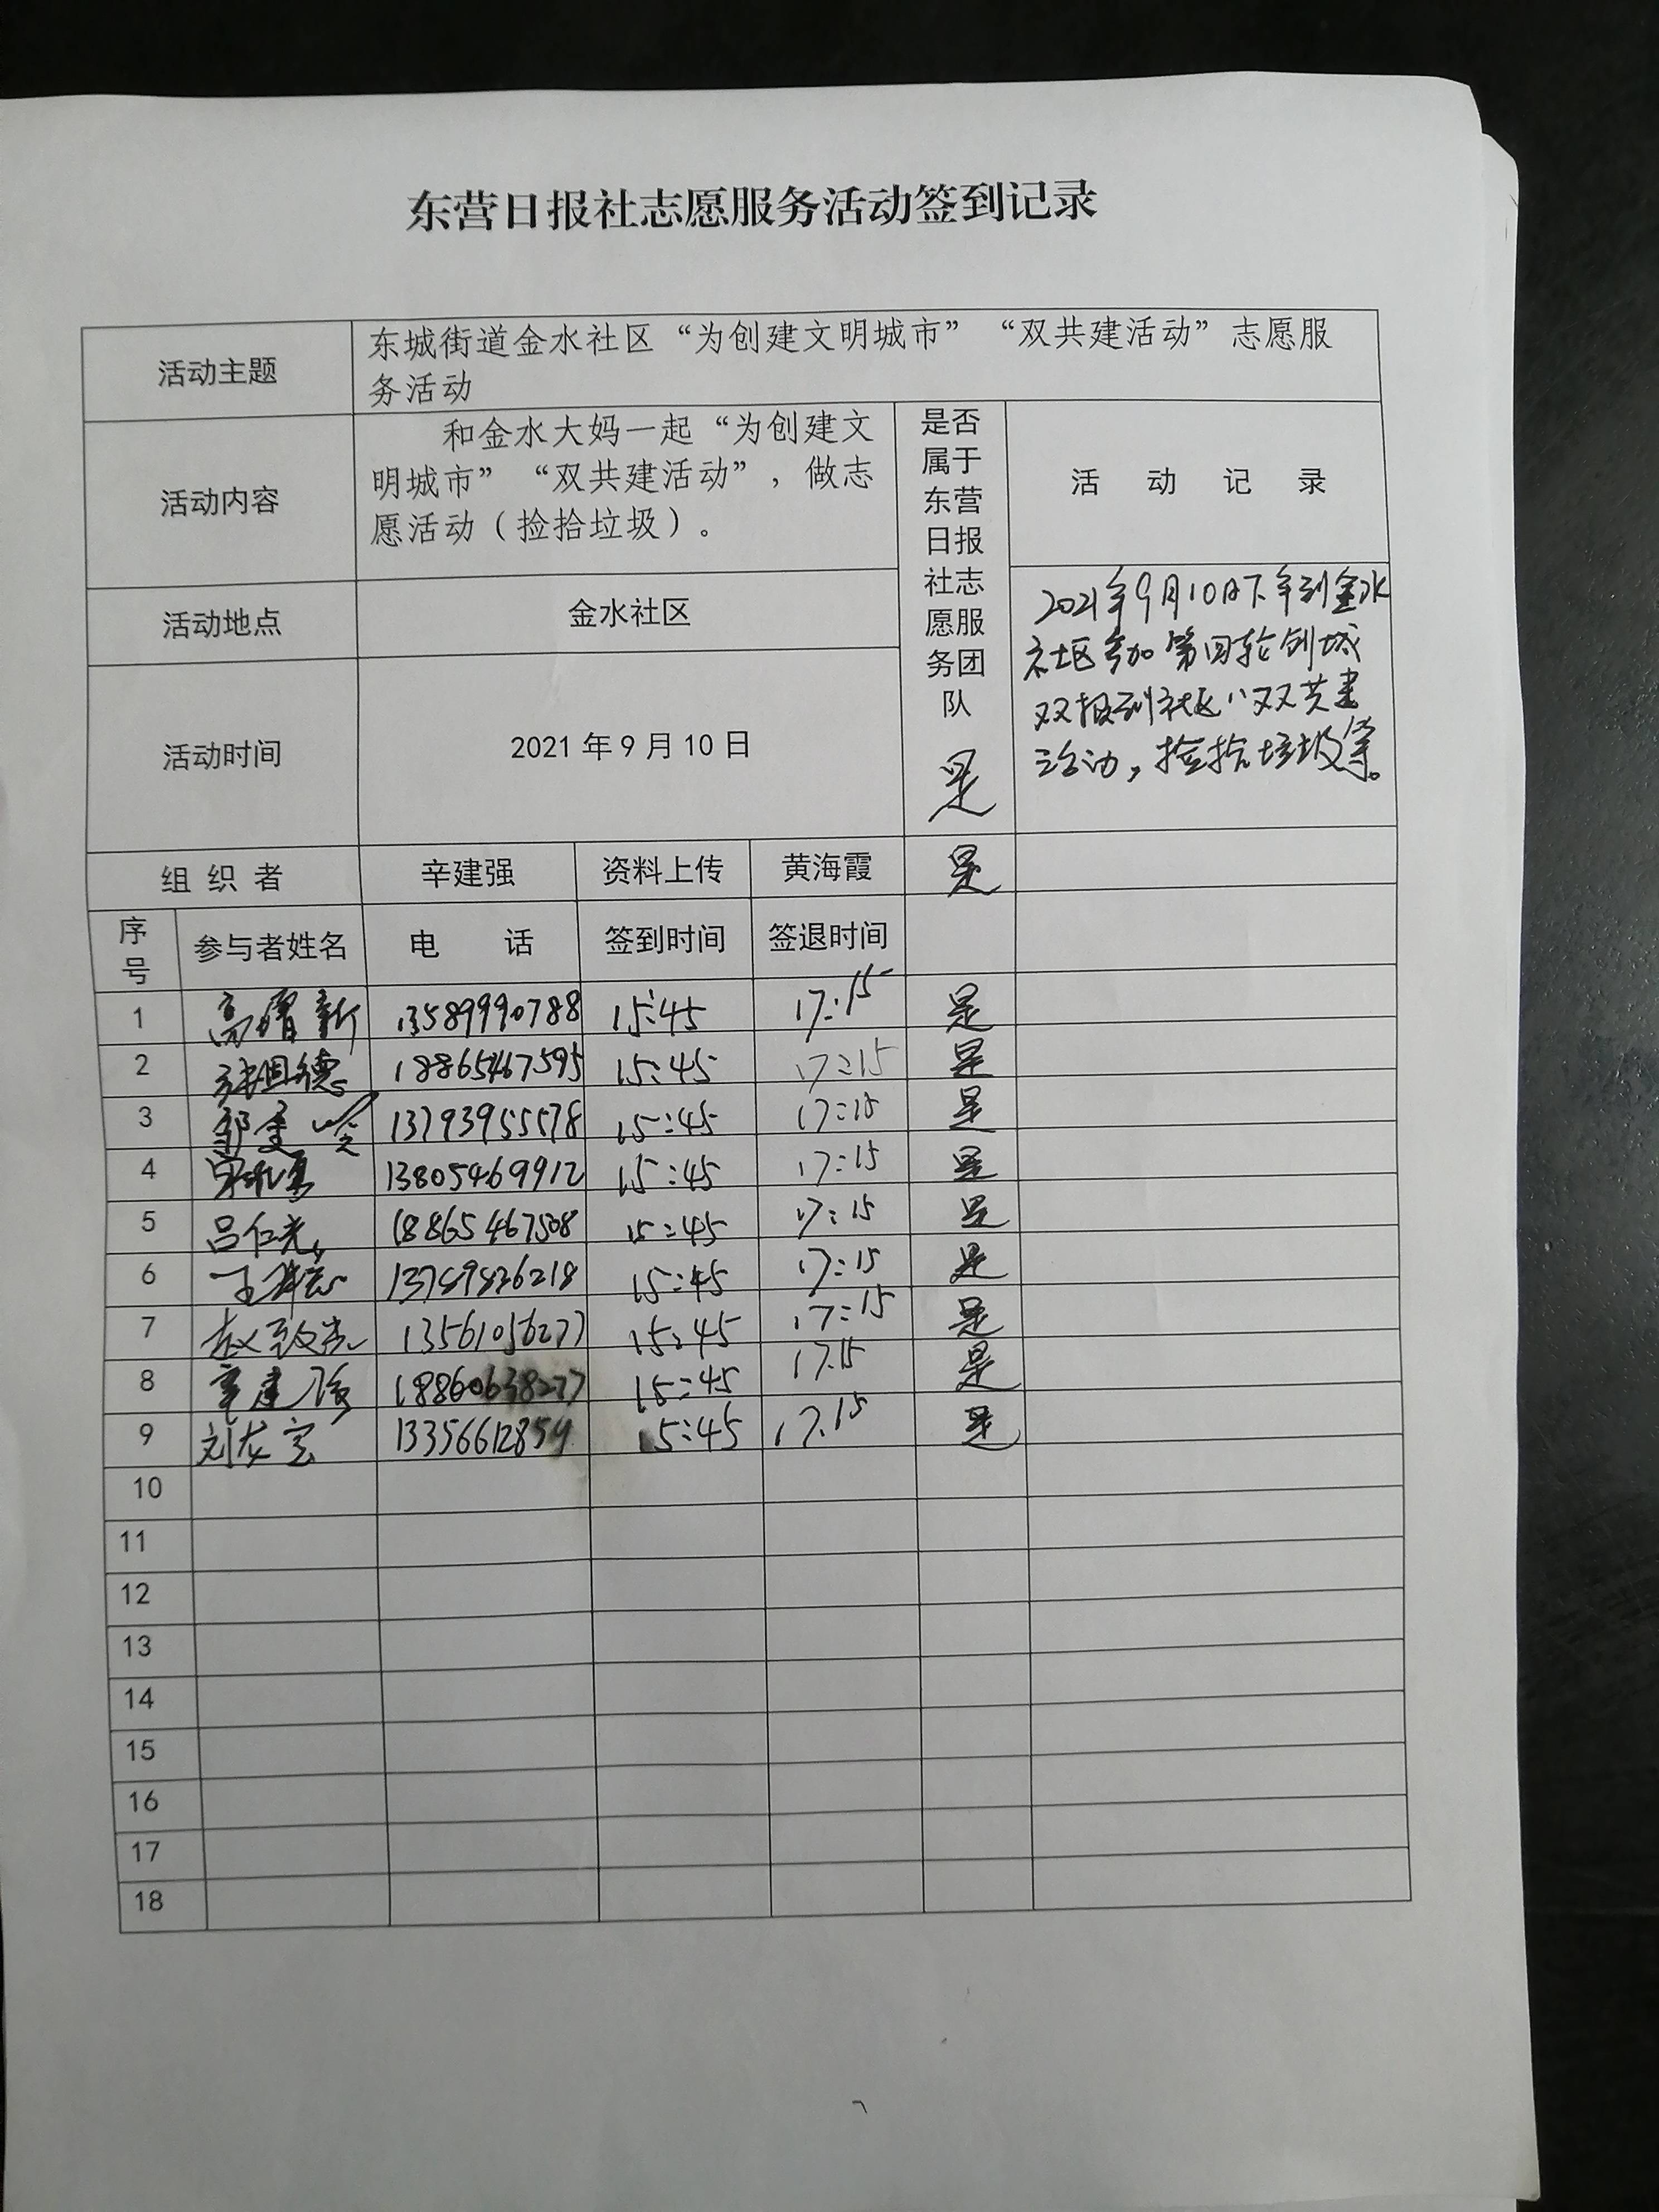 东营日报社志愿服务活动签到记录
活动主题
东城街道金水社区“为创建文明城市”“双共建活动”志愿服
务活动
活动内容
和金水大妈一起“为创建文
明城市”“双共建活动”，做志
愿活动（捡拾垃圾）。
是否
属于
东营
日报
社志
愿服
务团
队
是
活 动 记 录
活动地点 金水社区
活动时间 2021年9月10日
2021年9月10日下午到金水
社区参加第四轮创城
双报到社区“双共建
活动，捡拾垃圾等。
组织者 辛建强 资料上传 黄海霞 是
序
号
参与者姓名 电 话 签到时间 签退时间
1 高 新 13589990788 15:45 17:15 是
2 张国德 18865467595 15:45 17:15 是
3 13793955578 15:45 17:15 是
4 13805469912 15:45 17:15 是
5 吕仁光 18865467508 15:45 17:15 是
6 王 13789826218 15:45 17:15 是
7 赵 13561056277 15:45 17:15 是
8 辛建强 18860638277 15:45 17:15 是
9 刘龙宝 13356612859 15:45 17:15 是
10
11
12
13
14
15
16
17
18